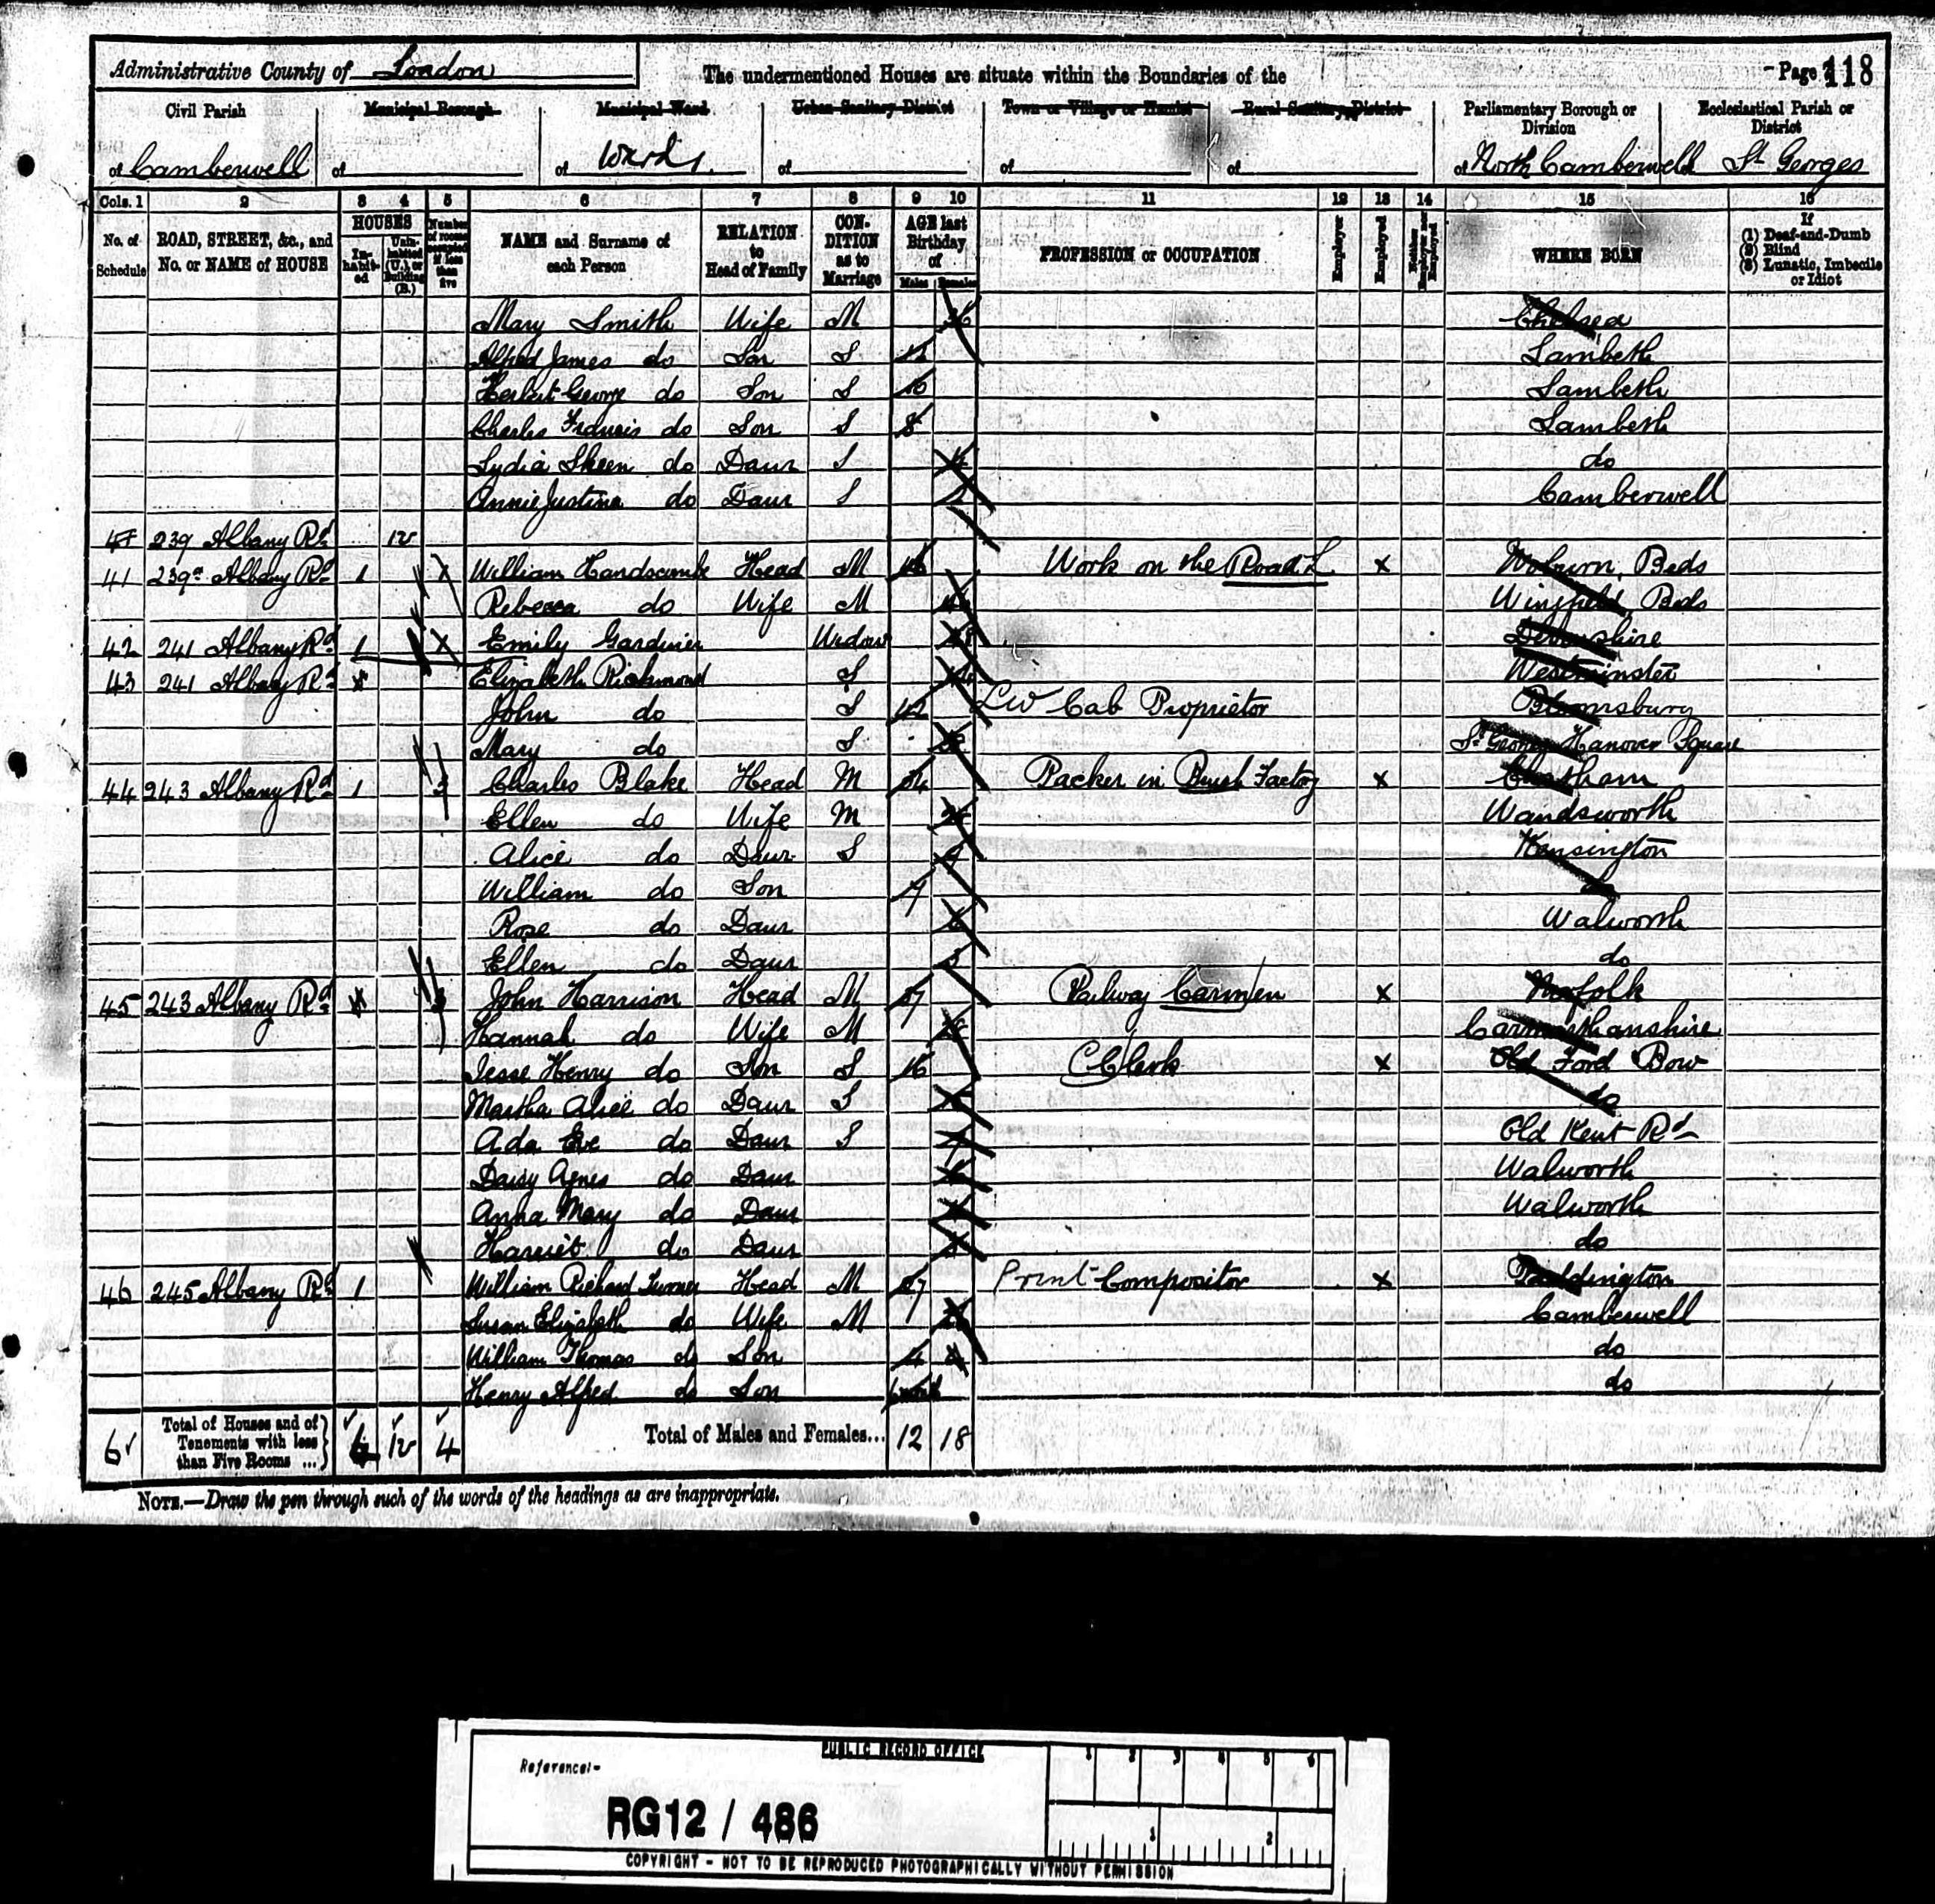 Administrative County of London
The undermentioned Houses are situate within the Boundaries of the
Page 118
Civil Parish Municipal Borough Municipal Ward Urban Sanitary District Town or Village or Hamlet Rural Sanitary District Parliamentary Borough or Division Ecclesiastical Parish or District
of Camberwell of of of of of of North Camberwell St Georges
Cols. 1 2 3 4 5 6 7 8 9 10 11 12 13 14 15 16
No. of Schedule ROAD, STREET, &c., and No. or NAME of HOUSE HOUSES Inhabited Uninhabited (U.), or Building (B.) Number of rooms occupied if less than five NAME and Surname of each Person RELATION to Head of Family CONDITION as to Marriage AGE last Birthday of Males Females PROFESSION or OCCUPATION Employer Employed Neither Employer nor Employed WHERE BORN If (1) Deaf-and-Dumb (2) Blind (3) Lunatic, Imbecile or Idiot
Mary Smith Wife M Chelsea
Alfred James do Son S 12 Lambeth
Herbert George do Son S 10 Lambeth
Charles Francis do Son S 8 Lambeth
Lydia Skeen do Daur S do
Annie Justina do Daur S Camberwell
239 Albany Rd
41 239a Albany Rd 1 William Handscombe Head M Work on the Road X Woburn, Beds
Rebecca do Wife M Wingfield, Beds
42 241 Albany Rd 1 Emily Gardiner Widow Devonshire
43 241 Albany Rd Elizabeth Richmond S Westminster
John do S 42 Cab Proprietor Bloomsbury
Mary do S St Georges Hanover Square
44 243 Albany Rd 1 Charles Blake Head M 34 Packer in Brush Factory X Chatham
Ellen do Wife M Wandsworth
Alice do Daur S 9 Kensington
William do Son 7 do
Rose do Daur 6 Walworth
Ellen do Daur 3 do
45 243 Albany Rd John Harrison Head M Railway Carmen X Norfolk
Hannah do Wife M Carmarthanshire
Jesse Henry do Son S 16 Clerk X Old Ford Bow
Martha Alice do Daur S do
Ada Eve do Daur S Old Kent Rd
Daisy Agnes do Daur Walworth
Anna Mary do Daur Walworth
Harriet do Daur do
46 245 Albany Rd 1 William Richard Turner Head M 27 Print Compositor X Paddington
Susan Elizabeth do Wife M Camberwell
William Thomas do Son do
Henry Alfred do Son do
6 Total of Houses and of Tenements with less than Five Rooms ... 4 Total of Males and Females... 12 18
NOTE.—Draw the pen through such of the words of the headings as are inappropriate.
PUBLIC RECORD OFFICE
1 2 3 4 5 6
Reference:-
RG12 / 486
1 2
COPYRIGHT - NOT TO BE REPRODUCED PHOTOGRAPHICALLY WITHOUT PERMISSION